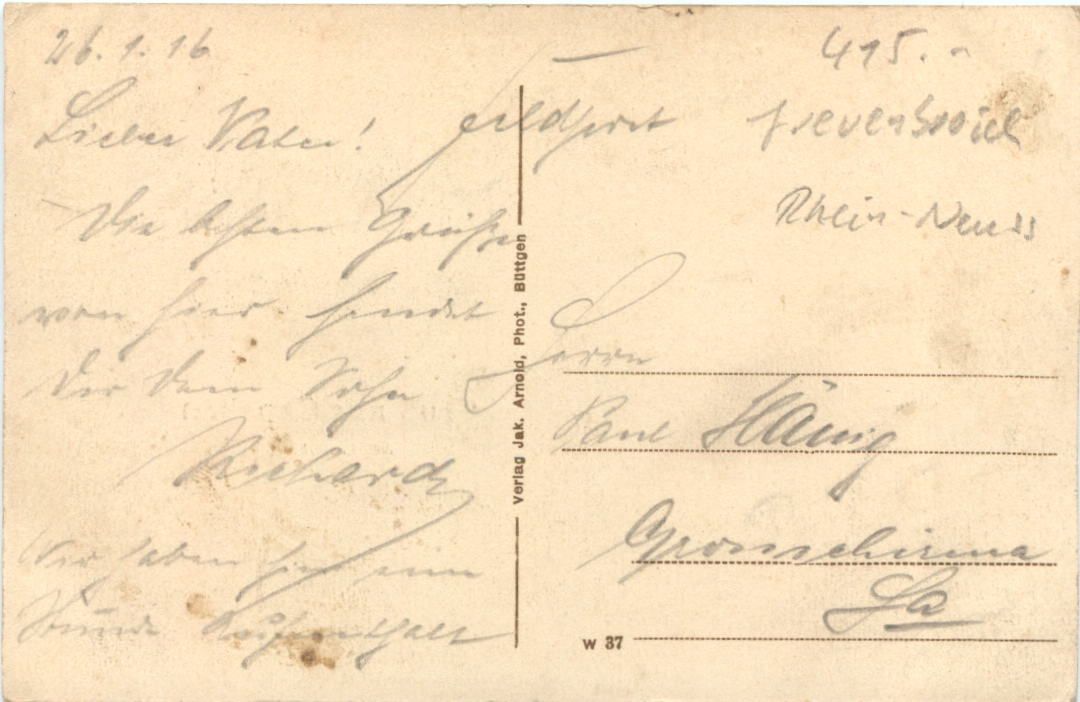 26.1.16
Lieber Vater!
Die besten Grüße
von hier sendet
Dir Dein Sohn
Richard
Wir haben hier eine
Stunde Aufenthalt
Feldpost
415.-
Grevenbroich
Rhein-Neuss
Verlag Jak. Arnold, Phot., Büttgen
Herrn
Paul Hänig
Grossschirma
Sa
W 37